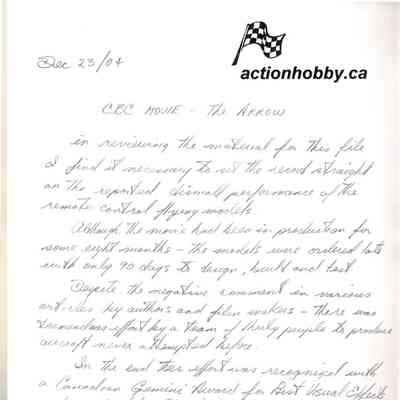 Dec 23/04
actionhobby.ca
CBC MOVIE - The ARROW
in reviewing the material for this file
I find it necessary to set the record straight
on the reported dismall performance of the
remote control flying models
Although the movie had been in production for
some eight months - the models were ordered late
with only 90 days to design, built and test.
Despite the negative comment in various
articles by authors and film makers - there was
tremendous effort by a team of thirty people to produce
aircraft never attempted before.
In the end their effort was recognized with
a Canadian Gemini Award for Best Visual Effects